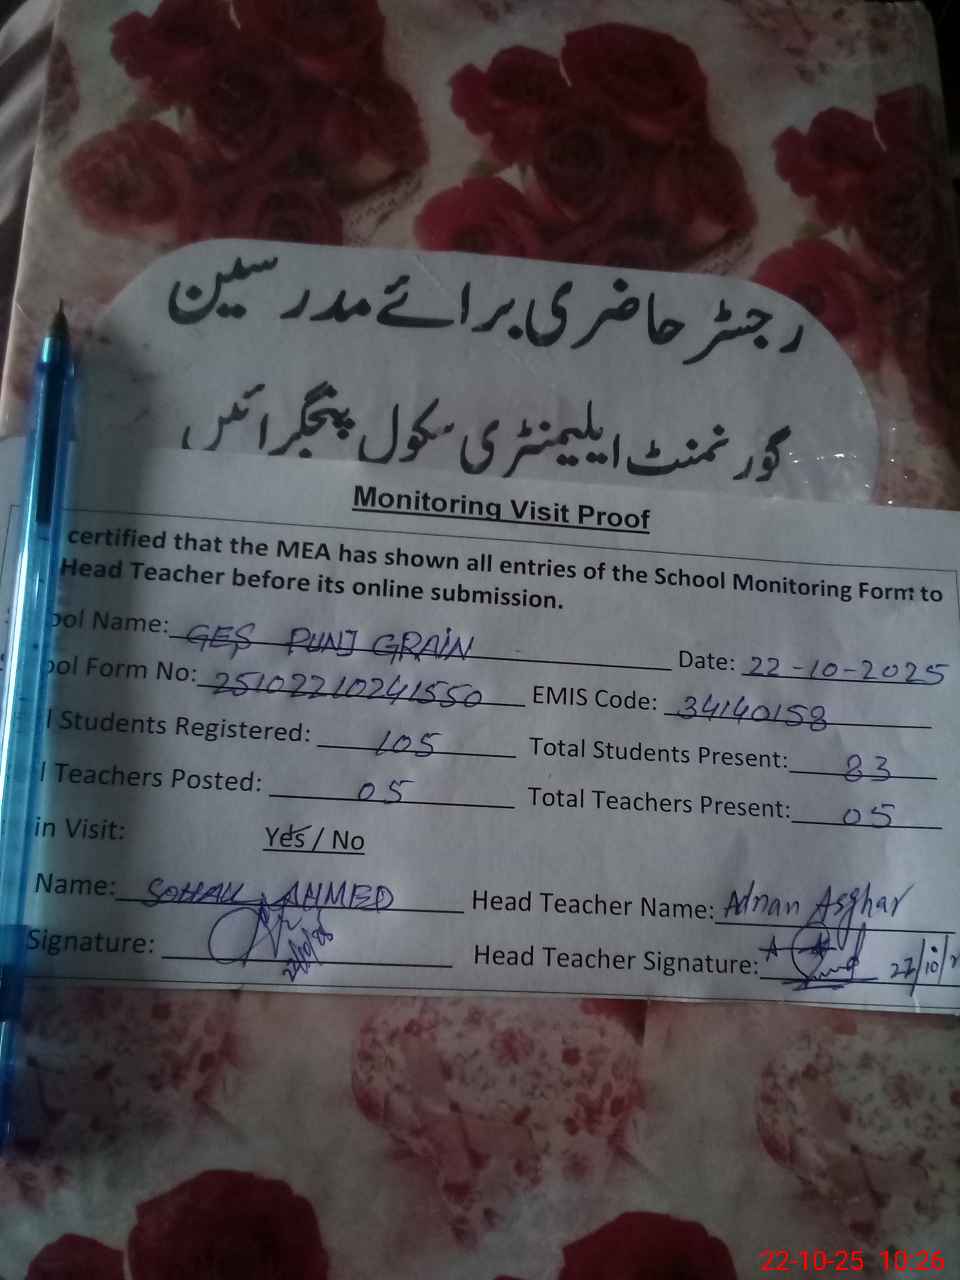 رجسٹر حاضری برائے مدرسین
گورنمنٹ ایلیمنٹری سکول پنجگرائیں
Monitoring Visit Proof
certified that the MEA has shown all entries of the School Monitoring Form to
Head Teacher before its online submission.
ool Name: GES PUNJ GRAIN Date: 22-10-2025
ool Form No: 25102210241550 EMIS Code: 34140158
l Students Registered: 105 Total Students Present: 83
l Teachers Posted: 05 Total Teachers Present: 05
in Visit: Yes / No
Name: SOHAIL AHMED Head Teacher Name: Adnan Asghar
Signature: 22/10/25 Head Teacher Signature: 22/10/2
22-10-25 10:26